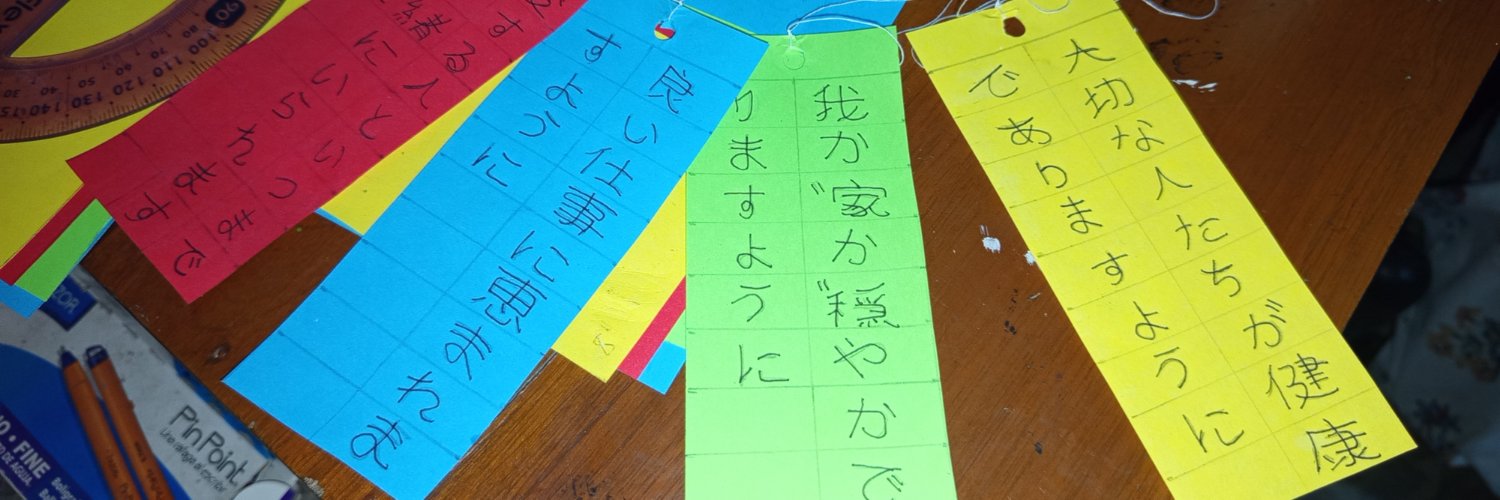 大切な人たちが健康
でありますように
我が家が穏やかで
りますように
良い仕事に恵まれま
すように
する人といつまで
緒にいられます
PinPoint
FINE